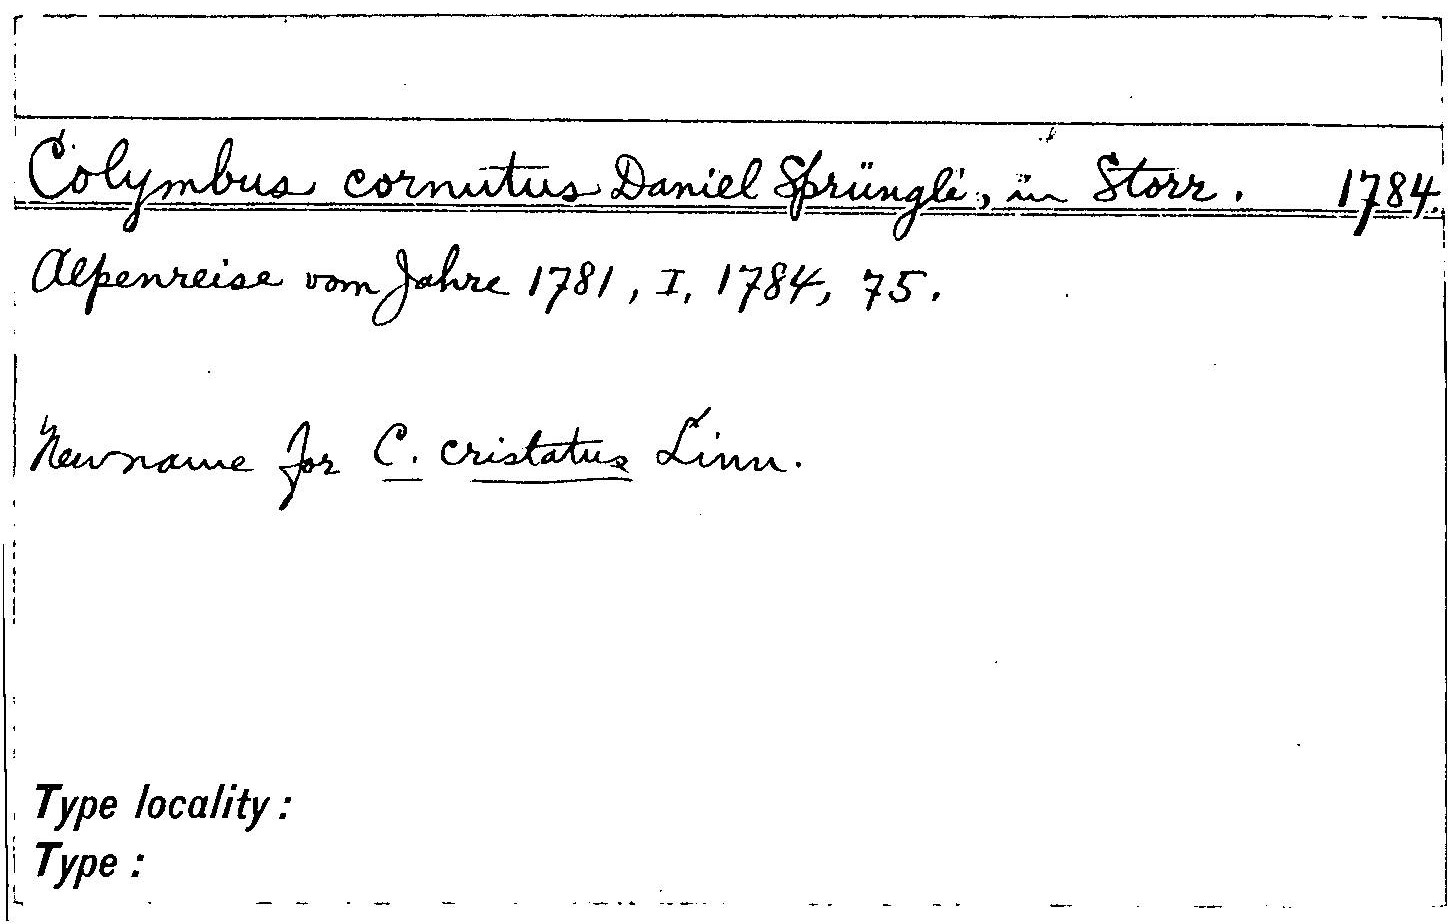 Colymbus cornutus Daniel Sprüngli, in Storr. 1784.
Alpenreise vom Jahre 1781, I, 1784, 75.
New name for C. cristatus Linn.
Type locality:
Type: